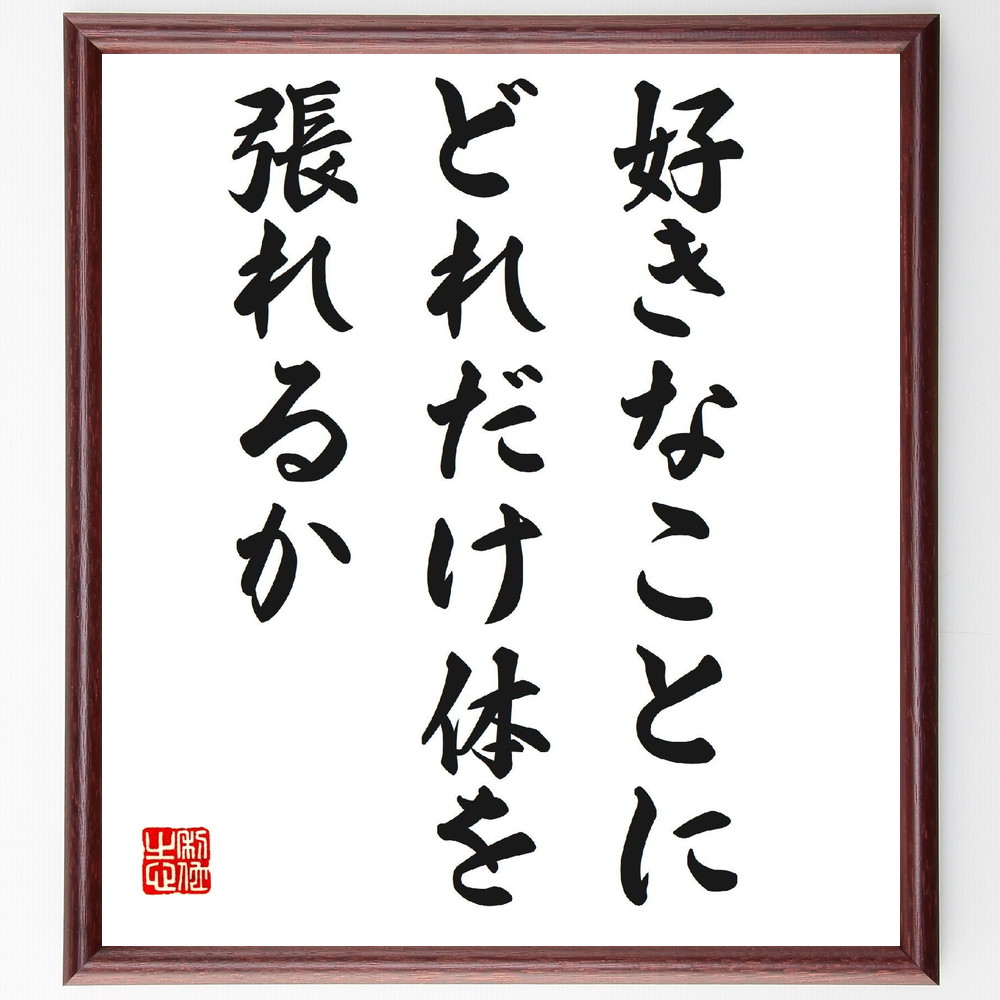 好きなことに
どれだけ体を
張れるか